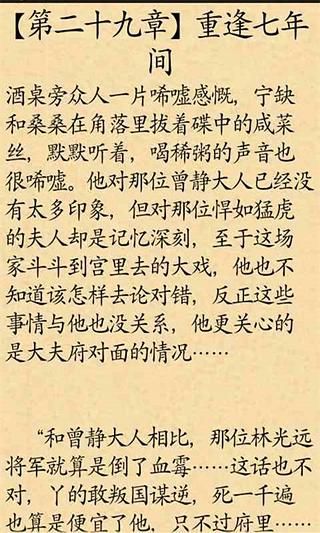 【第二十九章】重逢七年
间
酒桌旁众人一片唏嘘感慨，宁缺
和桑桑在角落里拔着碟中的咸菜
丝，默默听着，喝稀粥的声音也
很唏嘘。他对那位曾静大人已经没
有太多印象，但对那位悍如猛虎
的夫人却是记忆深刻，至于这场
家斗斗到宫里去的大戏，他也不
知道该怎样去论对错，反正这些
事情与他也没关系，他更关心的
是大夫府对面的情况……
“和曾静大人相比，那位林光远
将军就算是倒了血霉……这话也不
对，丫的敢叛国谋逆，死一千遍
也算是便宜了他，只不过府里……